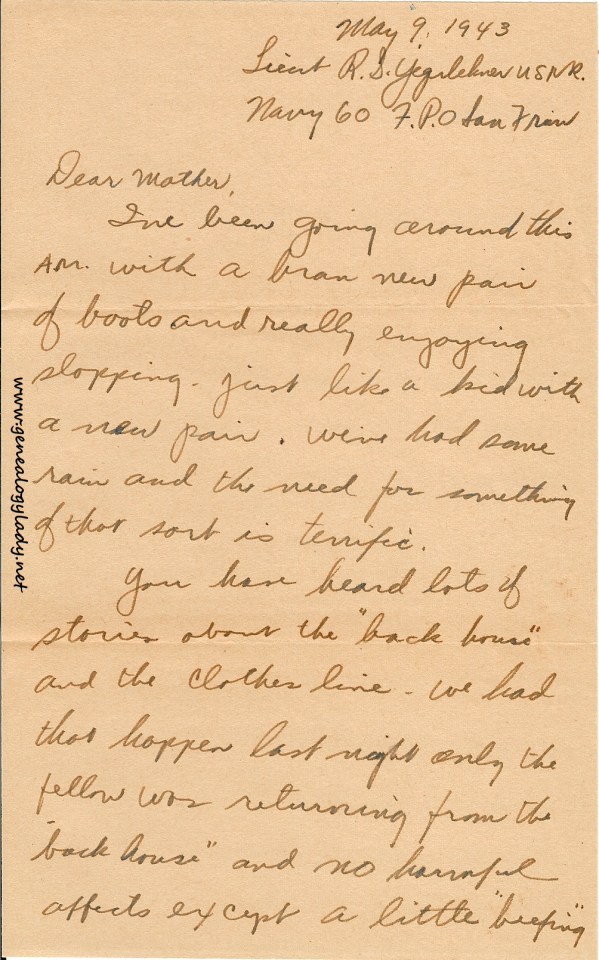 May 9, 1943
Lieut R.S. Yegerlehner USNR.
Navy 60 F.P.O San Fran
Dear Mother,
I've been going around this
AM. with a bran new pair
of boots and really enjoying
slopping - just like a kid with
a new pair. We've had some
rain and the need for something
of that sort is terrific.
You have heard lots of
stories about the "back house"
and the clothes line - we had
that happen last night only the
fellow was returning from the
"back house" and no harmful
affects except a little "beefing"
www.genealogylady.net